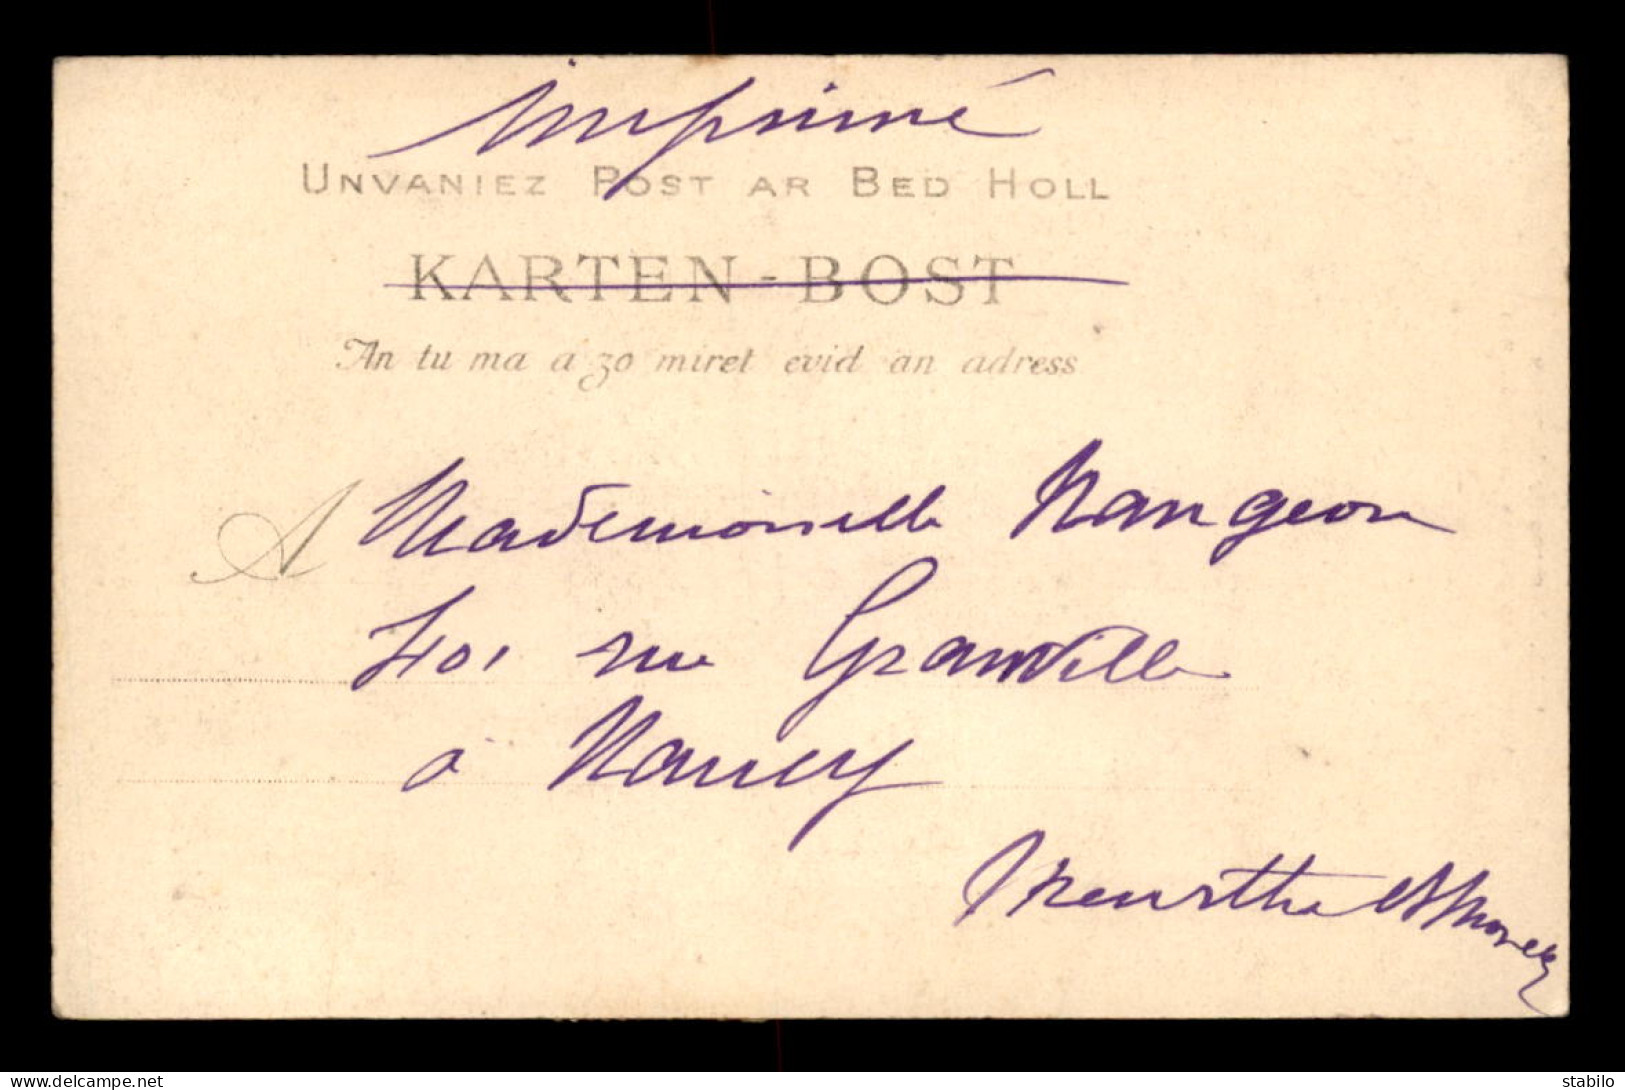 Imprimé
UNVANIEZ POST AR BED HOLL
KARTEN-BOST
An tu ma a zo miret evid an adress
A Mademoiselle Mangeon
40, rue Grandville
à Nancy
Meurthe et Moselle
delcampe.net stabilo